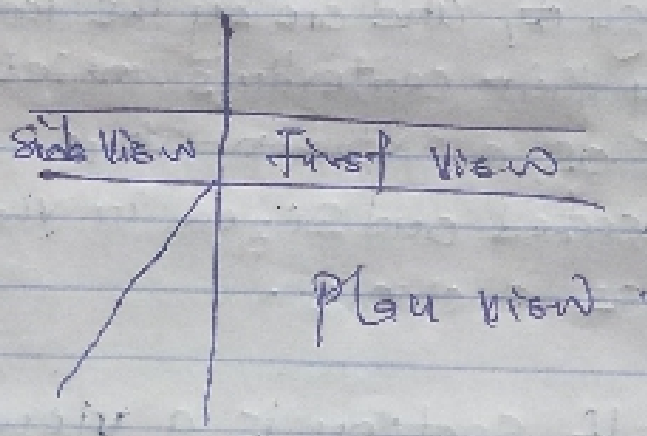 Side View First View
Plan view